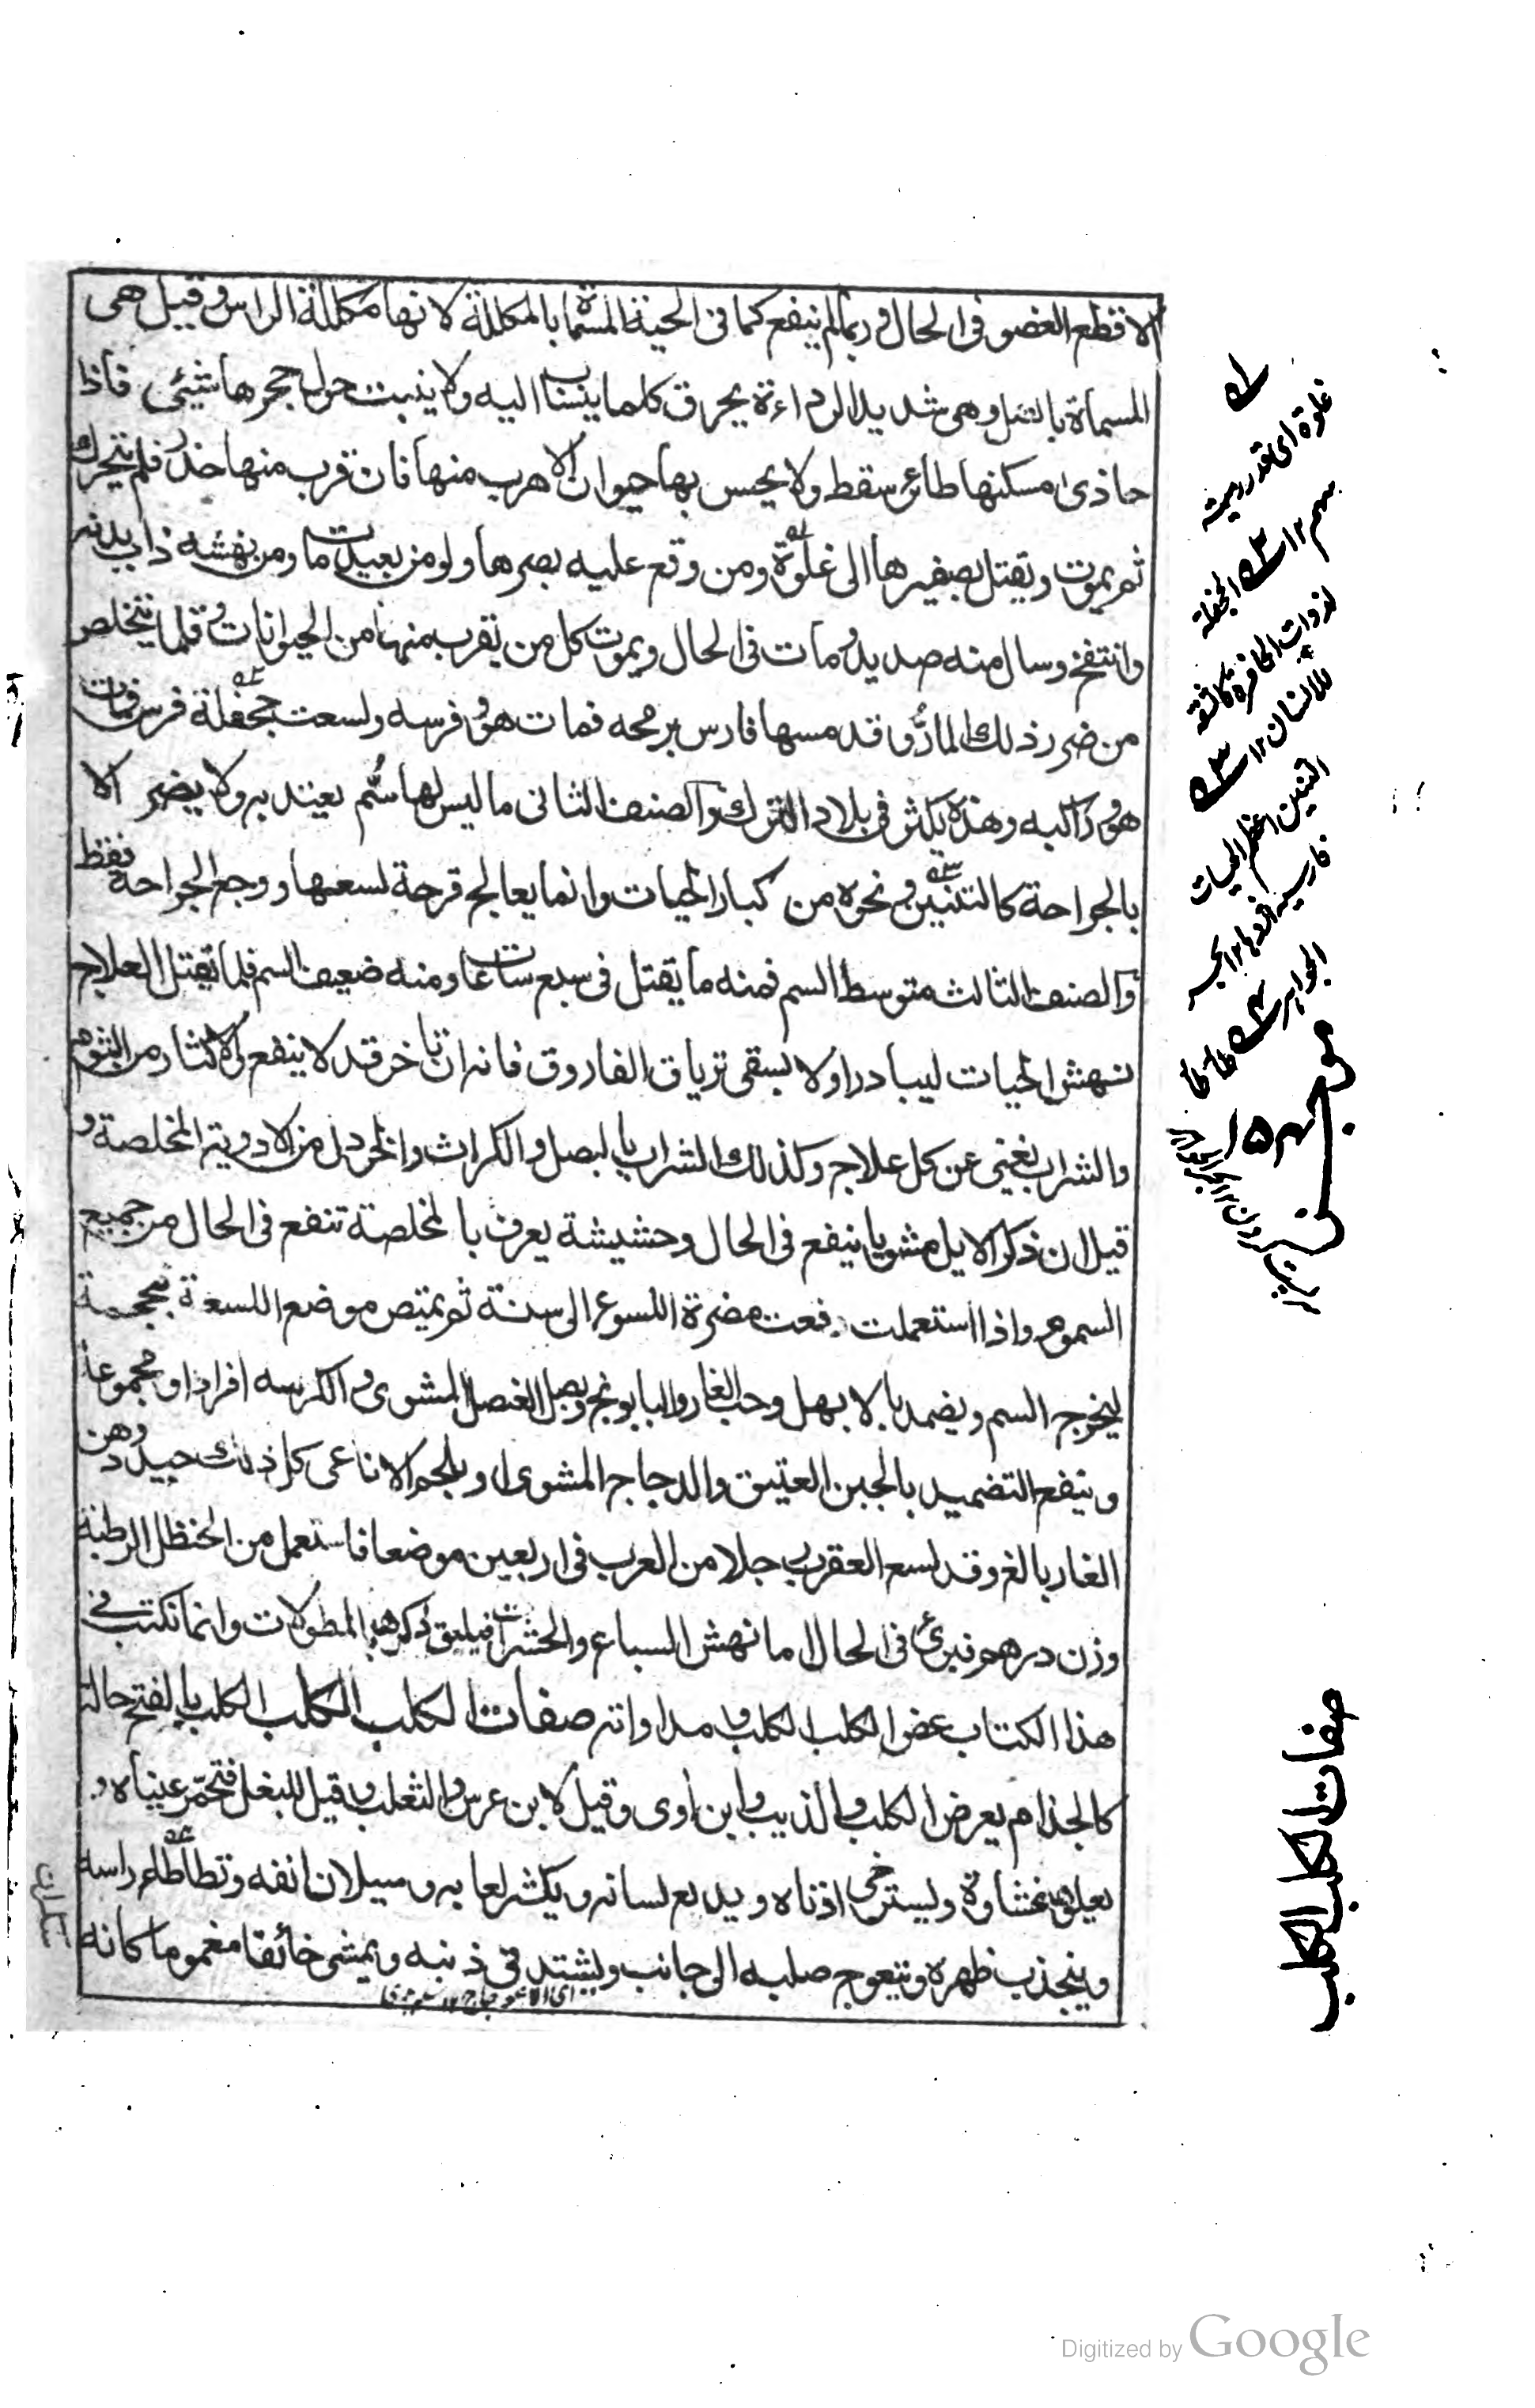 الا قطع العضو فى الحال و ربما لم ينفع كما فى الحية المسماة بالمكللة لانها مكللة الراس و قيل هى
المسماة بالتل وهى شديد الرداءة يحرق كلما ينساب اليه ولا ينبت حول جحرها شيئى فاذا
حاذى مسكنها طائر سقط ولا يحس بها حيوان الا هرب منها فان قرب منها خدر فلم يتحرك
ثم يموت و يقتل بصفيرها الى غلوة ومن وقع عليه بصرها ولو من بعيد مات ومن نهشه ذاب بدنه
وانتفخ وسال منه صديد و مات فى الحال ويموت كل من يقرب منها من الحيوانات و قلما يتخلص
من ضرر ذلك المار و قد مسها فارس برمحه فمات هو و فرسه ولسعت جحفلة فرس فمات
هو و راكبه وهذه يكثر فى بلاد الترك والصنف الثانى ما ليس لها سم يعتد به ولا يضر الا
بالجراحة كالتنين و نحوه من كبار الحيات وانما يعالج قرحة لسعها و وجع الجراحة فقط
والصنف الثالث متوسط السم فمنه ما يقتل فى سبع ساعات ومنه ضعيف السم قلما يقتل العلاج
نهش الحيات ليبادر اولا بسقى ترياق الفاروق فانه ان تاخر قد لا ينفع والاكثار من الثوم
والشراب يغنى عن كل علاج وكذلك الشراب بالبصل والكراث والخردل من الادوية المخلصة و
قيل ان ذكر الايل مشويا ينفع فى الحال وحشيشة يعرف بالمخلصة تنفع فى الحال من جميع
السموم واذا استعملت دفعت مضرة اللسوع الى سنة ثم يمتص موضع اللسعة بمحجمة
ليخرج السم ويضمد بالابهل وحب الغار والبابونج وبصل العنصل المشوى و الكرسه افرادا و مجموعا
و ينفع التضميد بالجبن العتيق والدجاج المشوى او بلحم الافاعى كل ذلك جيد و دهن
الغار بالغ و قد لسع العقرب رجلا من العرب فى اربعين موضعا فاستعمل من الحنظل الرطبة
وزن درهم فبرئ فى الحال اما نهش السباع والحشرات فيليق ذكرها بالمطولات وانما نكتب فى
هذا الكتاب عض الكلب الكلب و مداواته صفات الكلب الكلب الكلب بالفتح حالة
كالجذام يعرض الكلب و الذيب و ابن اوى و قيل لابن عرس و الثعلب و قيل للبغل فتحمر عيناه و
يعلوها غشاوة و يسترخى اذناه و يدلع لسانه و يكثر لعابه و سيلان انفه و تطأطأ راسه
و ينجذب ظهره و يتعوج صلبه الى جانب و يشتد فى ذنبه و يمشى خائفا مغموما كانه
غلوة اى قدر رمية
سهم ١٢
الجحفلة
لذوات الحافر كالشفة
للانسان ١٢
التنين اعظم الحيات
موجز
صفات الكلب الكلب
سكران
Digitized by Google